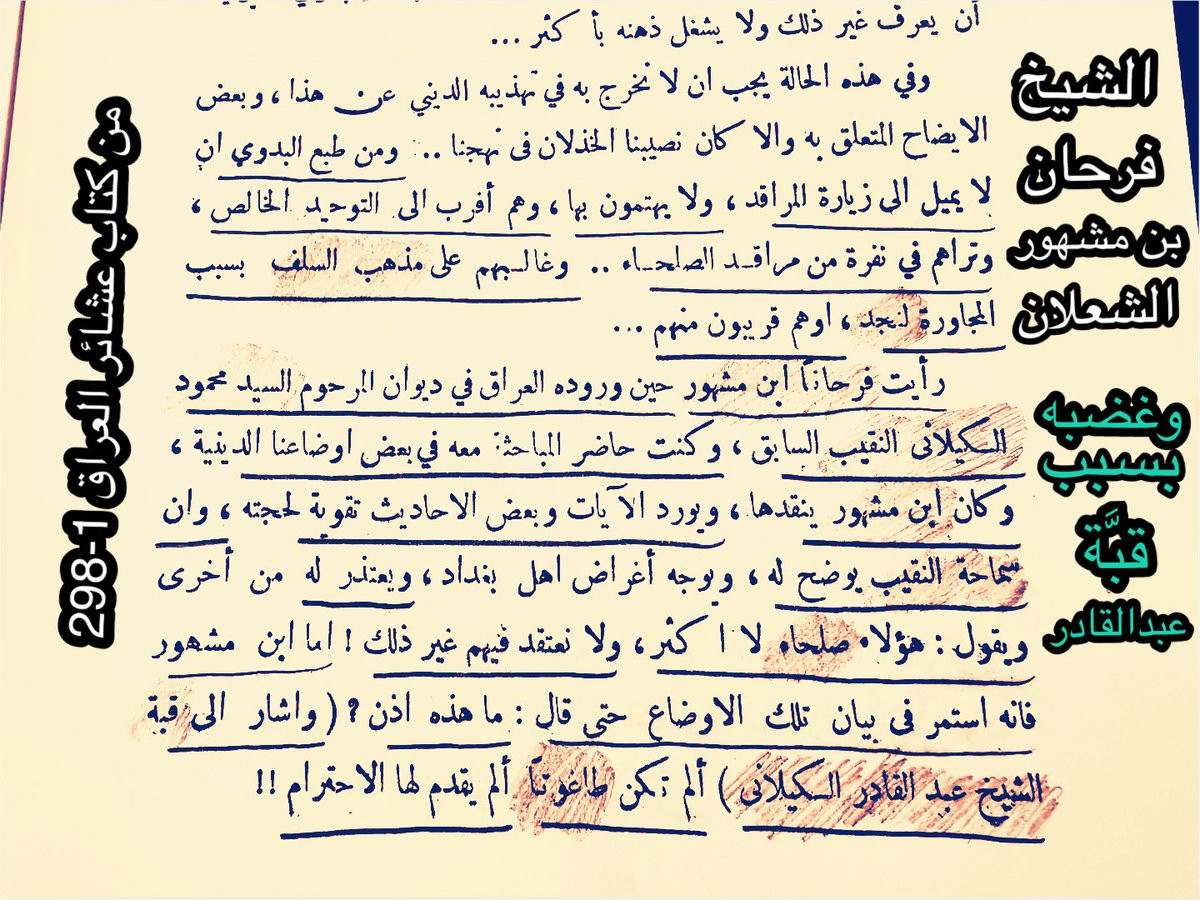 أن يعرف غير ذلك ولا يشغل ذهنه بأ كثر ...
وفي هذه الحالة يجب ان لا نخرج به في تهذيبه الديني عن هذا ، وبعض
الايضاح المتعلق به والا كان نصيبنا الخذلان في نهجنا .. ومن طبع البدوي ان
لا يميل الى زيارة المراقد ، ولا يهتمون بها ، وهم أقرب الى التوحيد الخالص ،
وتراهم في نفرة من مراقد الصلحاء .. وغالبهم على مذهب السلف بسبب
المجاورة لنجد ، اوهم قريبون منهم ...
رأيت فرحاناً ابن مشهور حين وروده العراق في ديوان المرحوم السيد محمود
الكيلانى النقيب السابق ، وكنت حاضر المباحثة معه في بعض اوضاعنا الدينية ،
وكان ابن مشهور ينقدها ، ويورد الآيات وبعض الاحاديث تقوية لحجته ، وان
سماحة النقيب يوضح له ، ويوجه أغراض اهل بغداد ، ويعتذر له من أخرى
ويقول : هؤلاء صلحاء لا ا كثر ، ولا نعتقد فيهم غير ذلك ! اما ابن مشهور
فانه استمر فى بيان تلك الاوضاع حتى قال : ما هذه اذن ? ( واشار الى قبة
الشيخ عبد القادر الكيلانى ) ألم تكن طاغوتاً ألم يقدم لها الاحترام !!
الشيخ
فرحان
بن مشهور
الشعلان
وغضبه
بسبب
قبَّة
عبدالقادر
من كتاب عشائر العراق 1-298